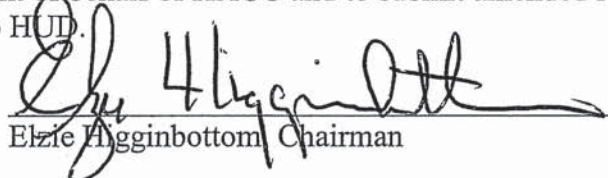 HUD.
Elzie Higginbottom
Elzie Higginbottom, Chairman